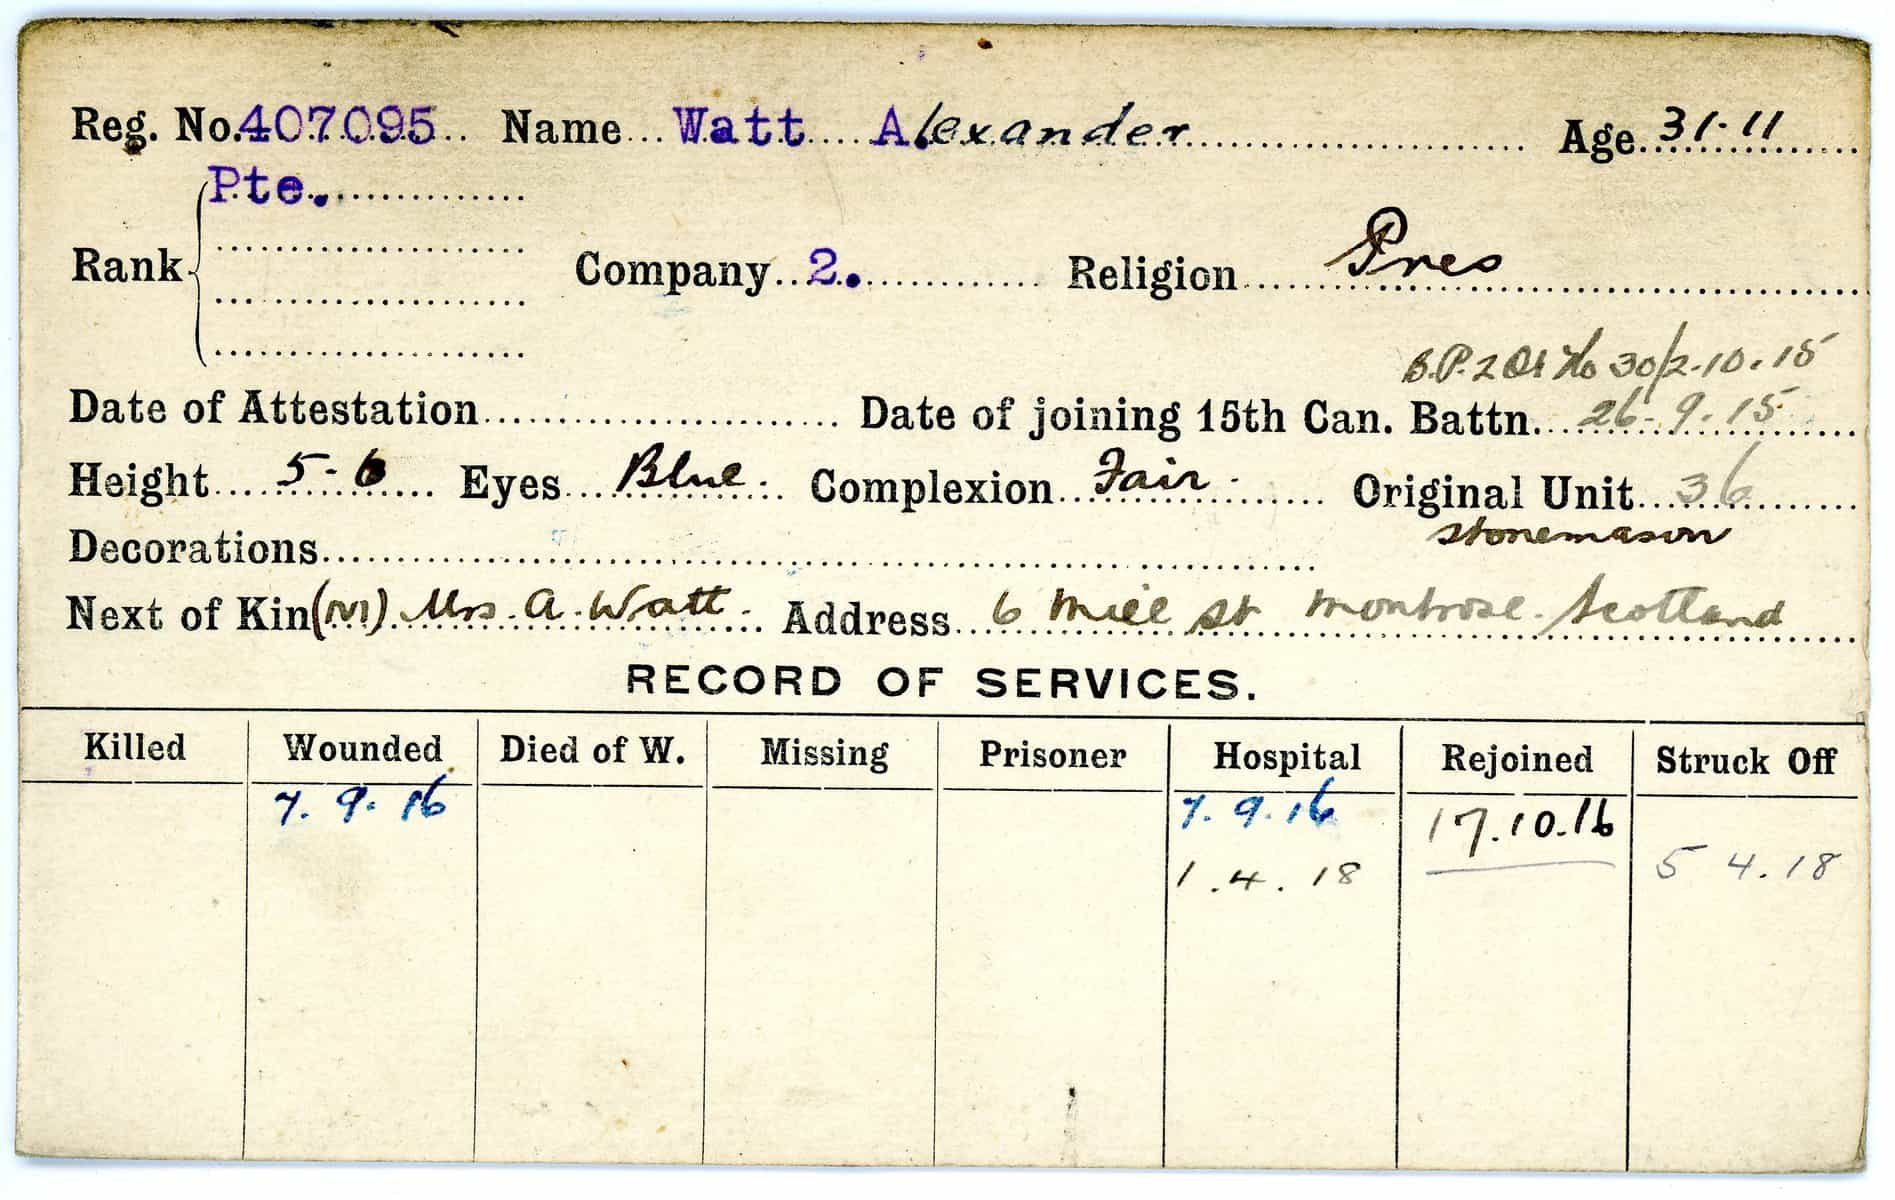 Reg. No. 407095 Name Watt Alexander Age 31-11
Pte.
Rank Company 2. Religion Pres
B.P. 2 No 30/2-10-15
Date of Attestation Date of joining 15th Can. Battn. 26-9-15
Height 5-6 Eyes Blue Complexion Fair Original Unit 36
Decorations Stonemason
Next of Kin (M) Mrs. A. Watt. Address 6 Mill St Montrose. Scotland
RECORD OF SERVICES.
Killed Wounded Died of W. Missing Prisoner Hospital Rejoined Struck Off
7.9.16 7.9.16 17.10.16
1.4.18 5 4.18